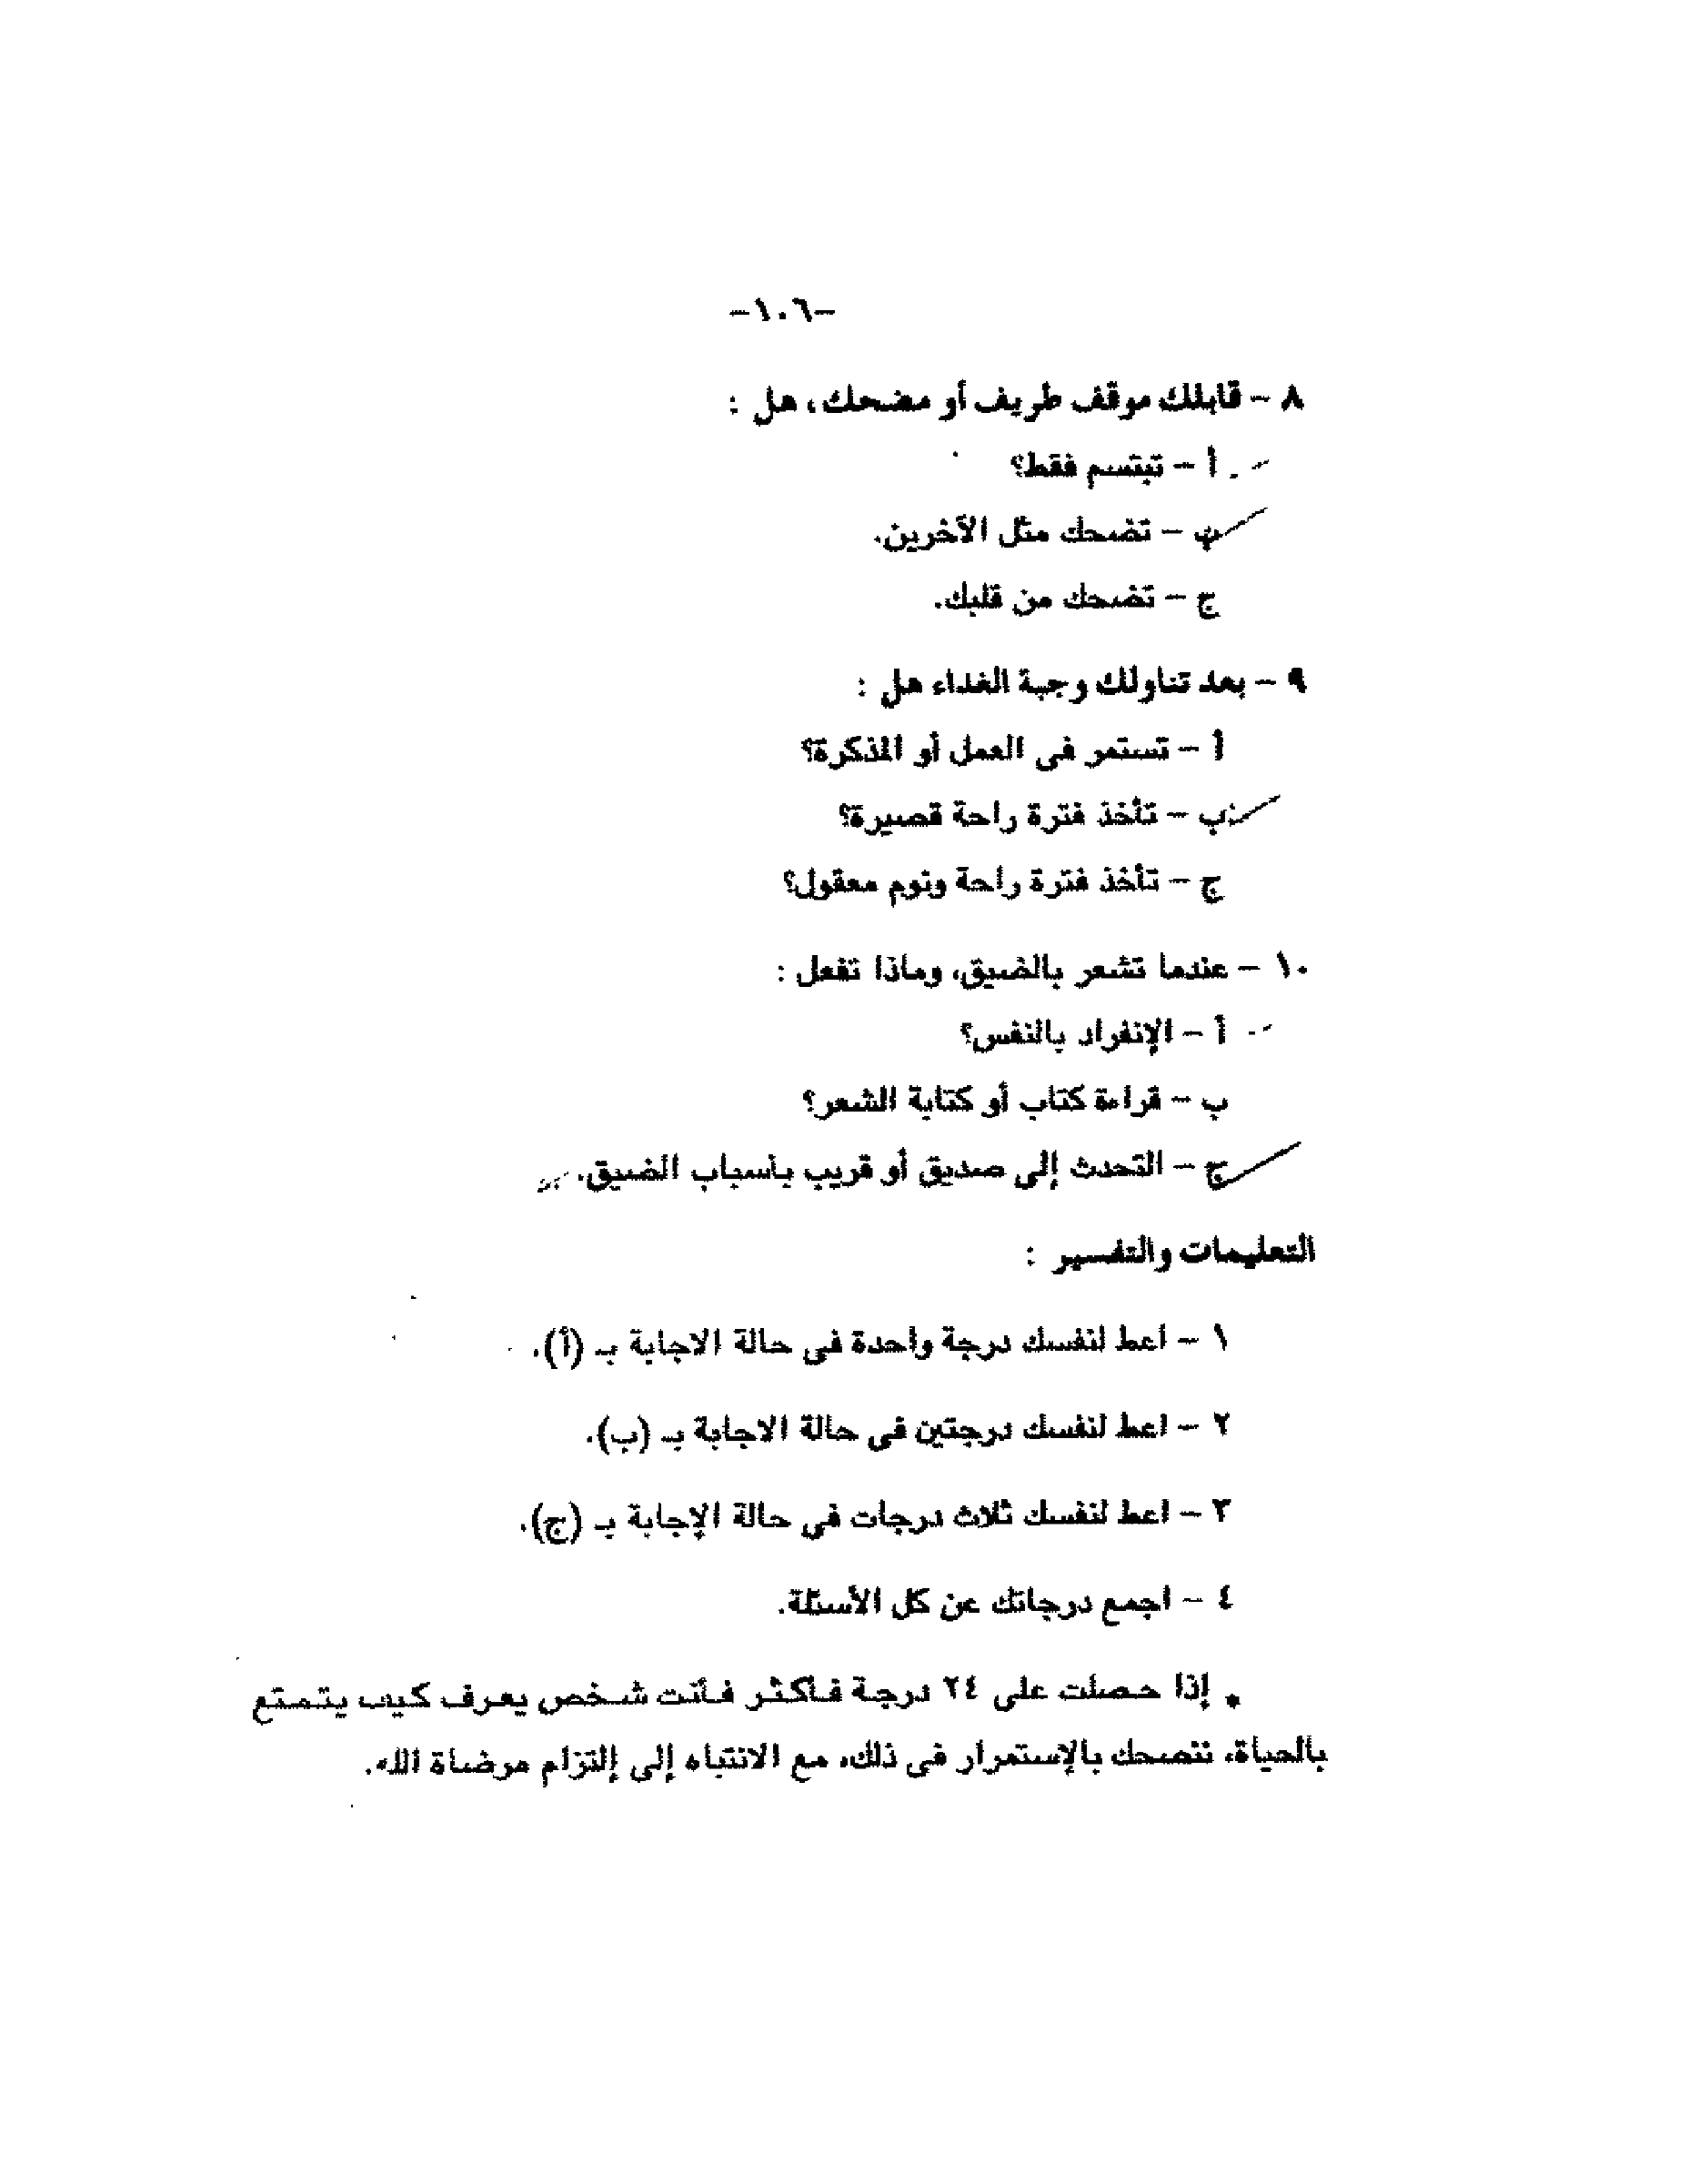 -١٠٦-
٨ - قابلك موقف طريف أو مضحك، هل :
أ - تبتسم فقط؟
ب - تضحك مثل الآخرين.
ج - تضحك من قلبك.
٩ - بعد تناولك وجبة الغداء هل :
أ - تستمر فى العمل أو المذكرة؟
ب - تأخذ فترة راحة قصيرة؟
ج - تأخذ فترة راحة ونوم معقول؟
١٠ - عندما تشعر بالضيق، وماذا تفعل :
أ - الإنفراد بالنفس؟
ب - قراءة كتاب أو كتابة الشعر؟
ج - التحدث إلى صديق أو قريب بأسباب الضيق.
التعليمات والتفسير :
١ - اعط لنفسك درجة واحدة فى حالة الاجابة بـ (أ).
٢ - اعط لنفسك درجتين فى حالة الاجابة بـ (ب).
٣ - اعط لنفسك ثلاث درجات فى حالة الإجابة بـ (ج).
٤ - اجمع درجاتك عن كل الأسئلة.
* إذا حصلت على ٢٤ درجة فأكثر فأنت شخص يعرف كيف يتمتع
بالحياة، ننصحك بالإستمرار فى ذلك، مع الانتباه إلى إلتزام مرضاة الله.